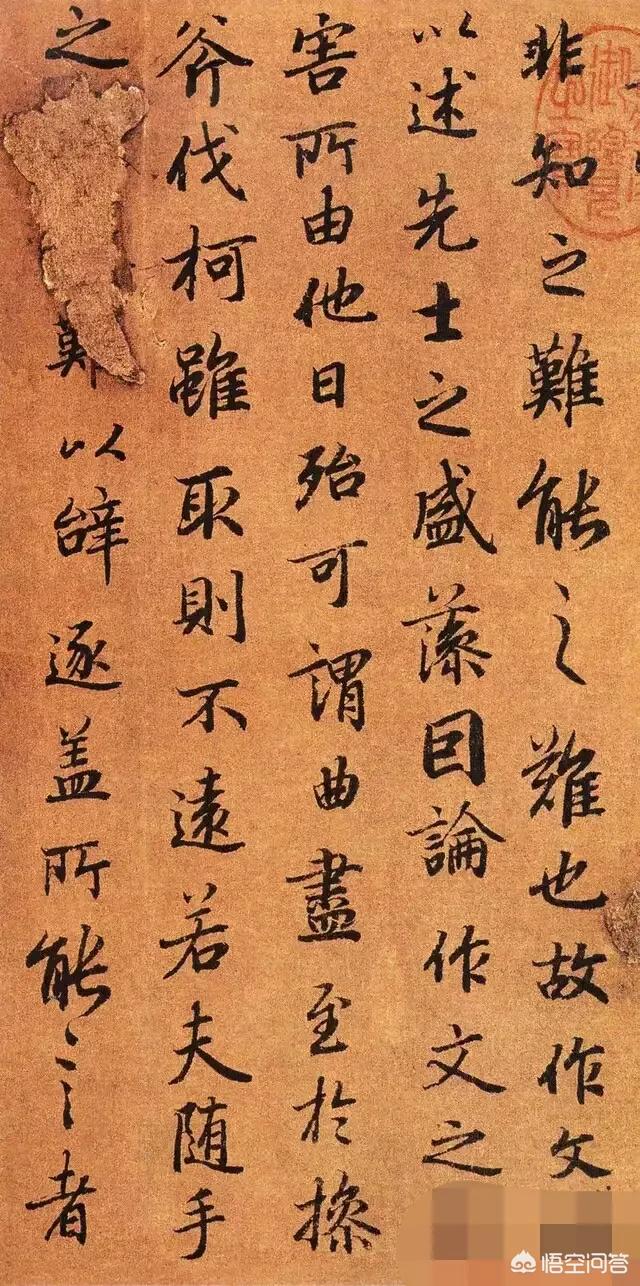 非知之難能之難也故作文
以述先士之盛藻囙論作文之
害所由他日殆可謂曲盡至於操
斧伐柯雖取則不遠若夫随手
之以辝逐盖所能言者
悟空问答